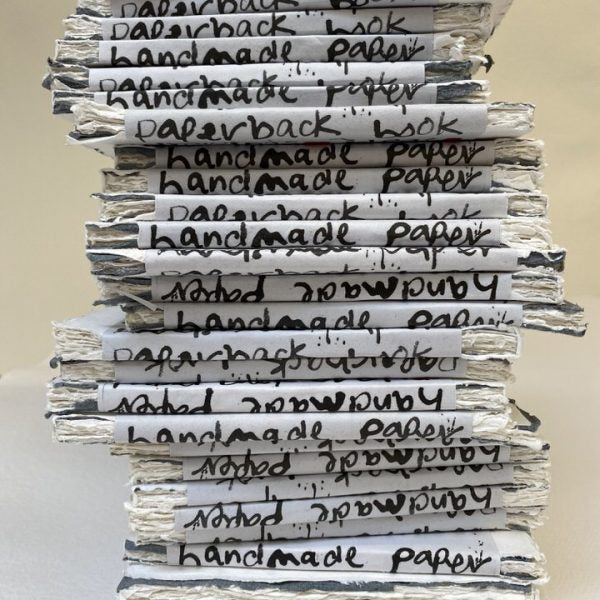 paperback book
handmade paper
paperback
handmade paper
paperback book
handmade paper
handmade paper
paperback book
handmade paper
handmade paper
handmade paper
handmade paper
paperback book
handmade paper
handmade paper
handmade paper
handmade paper
handmade paper